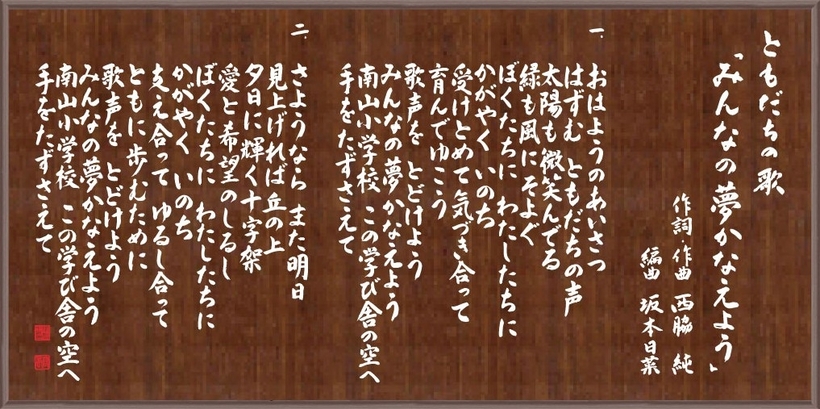 ともだちの歌
「みんなの夢かなえよう」
作詞・作曲 西脇 純
編曲 坂本日菜
一.
おはようのあいさつ
はずむ ともだちの声
太陽も微笑んでる
緑も風にそよぐ
ぼくたちに わたしたちに
かがやく いのち
受けとめて 気づき合って
育んでゆこう
歌声を とどけよう
みんなの夢かなえよう
南山小学校 この学び舎の空へ
手をたずさえて
二.
さようなら また明日
見上げれば丘の上
夕日に輝く十字架
愛と希望のしるし
ぼくたちに わたしたちに
かがやく いのち
支え合って ゆるし合って
ともに歩むために
歌声を とどけよう
みんなの夢かなえよう
南山小学校 この学び舎の空へ
手をたずさえて